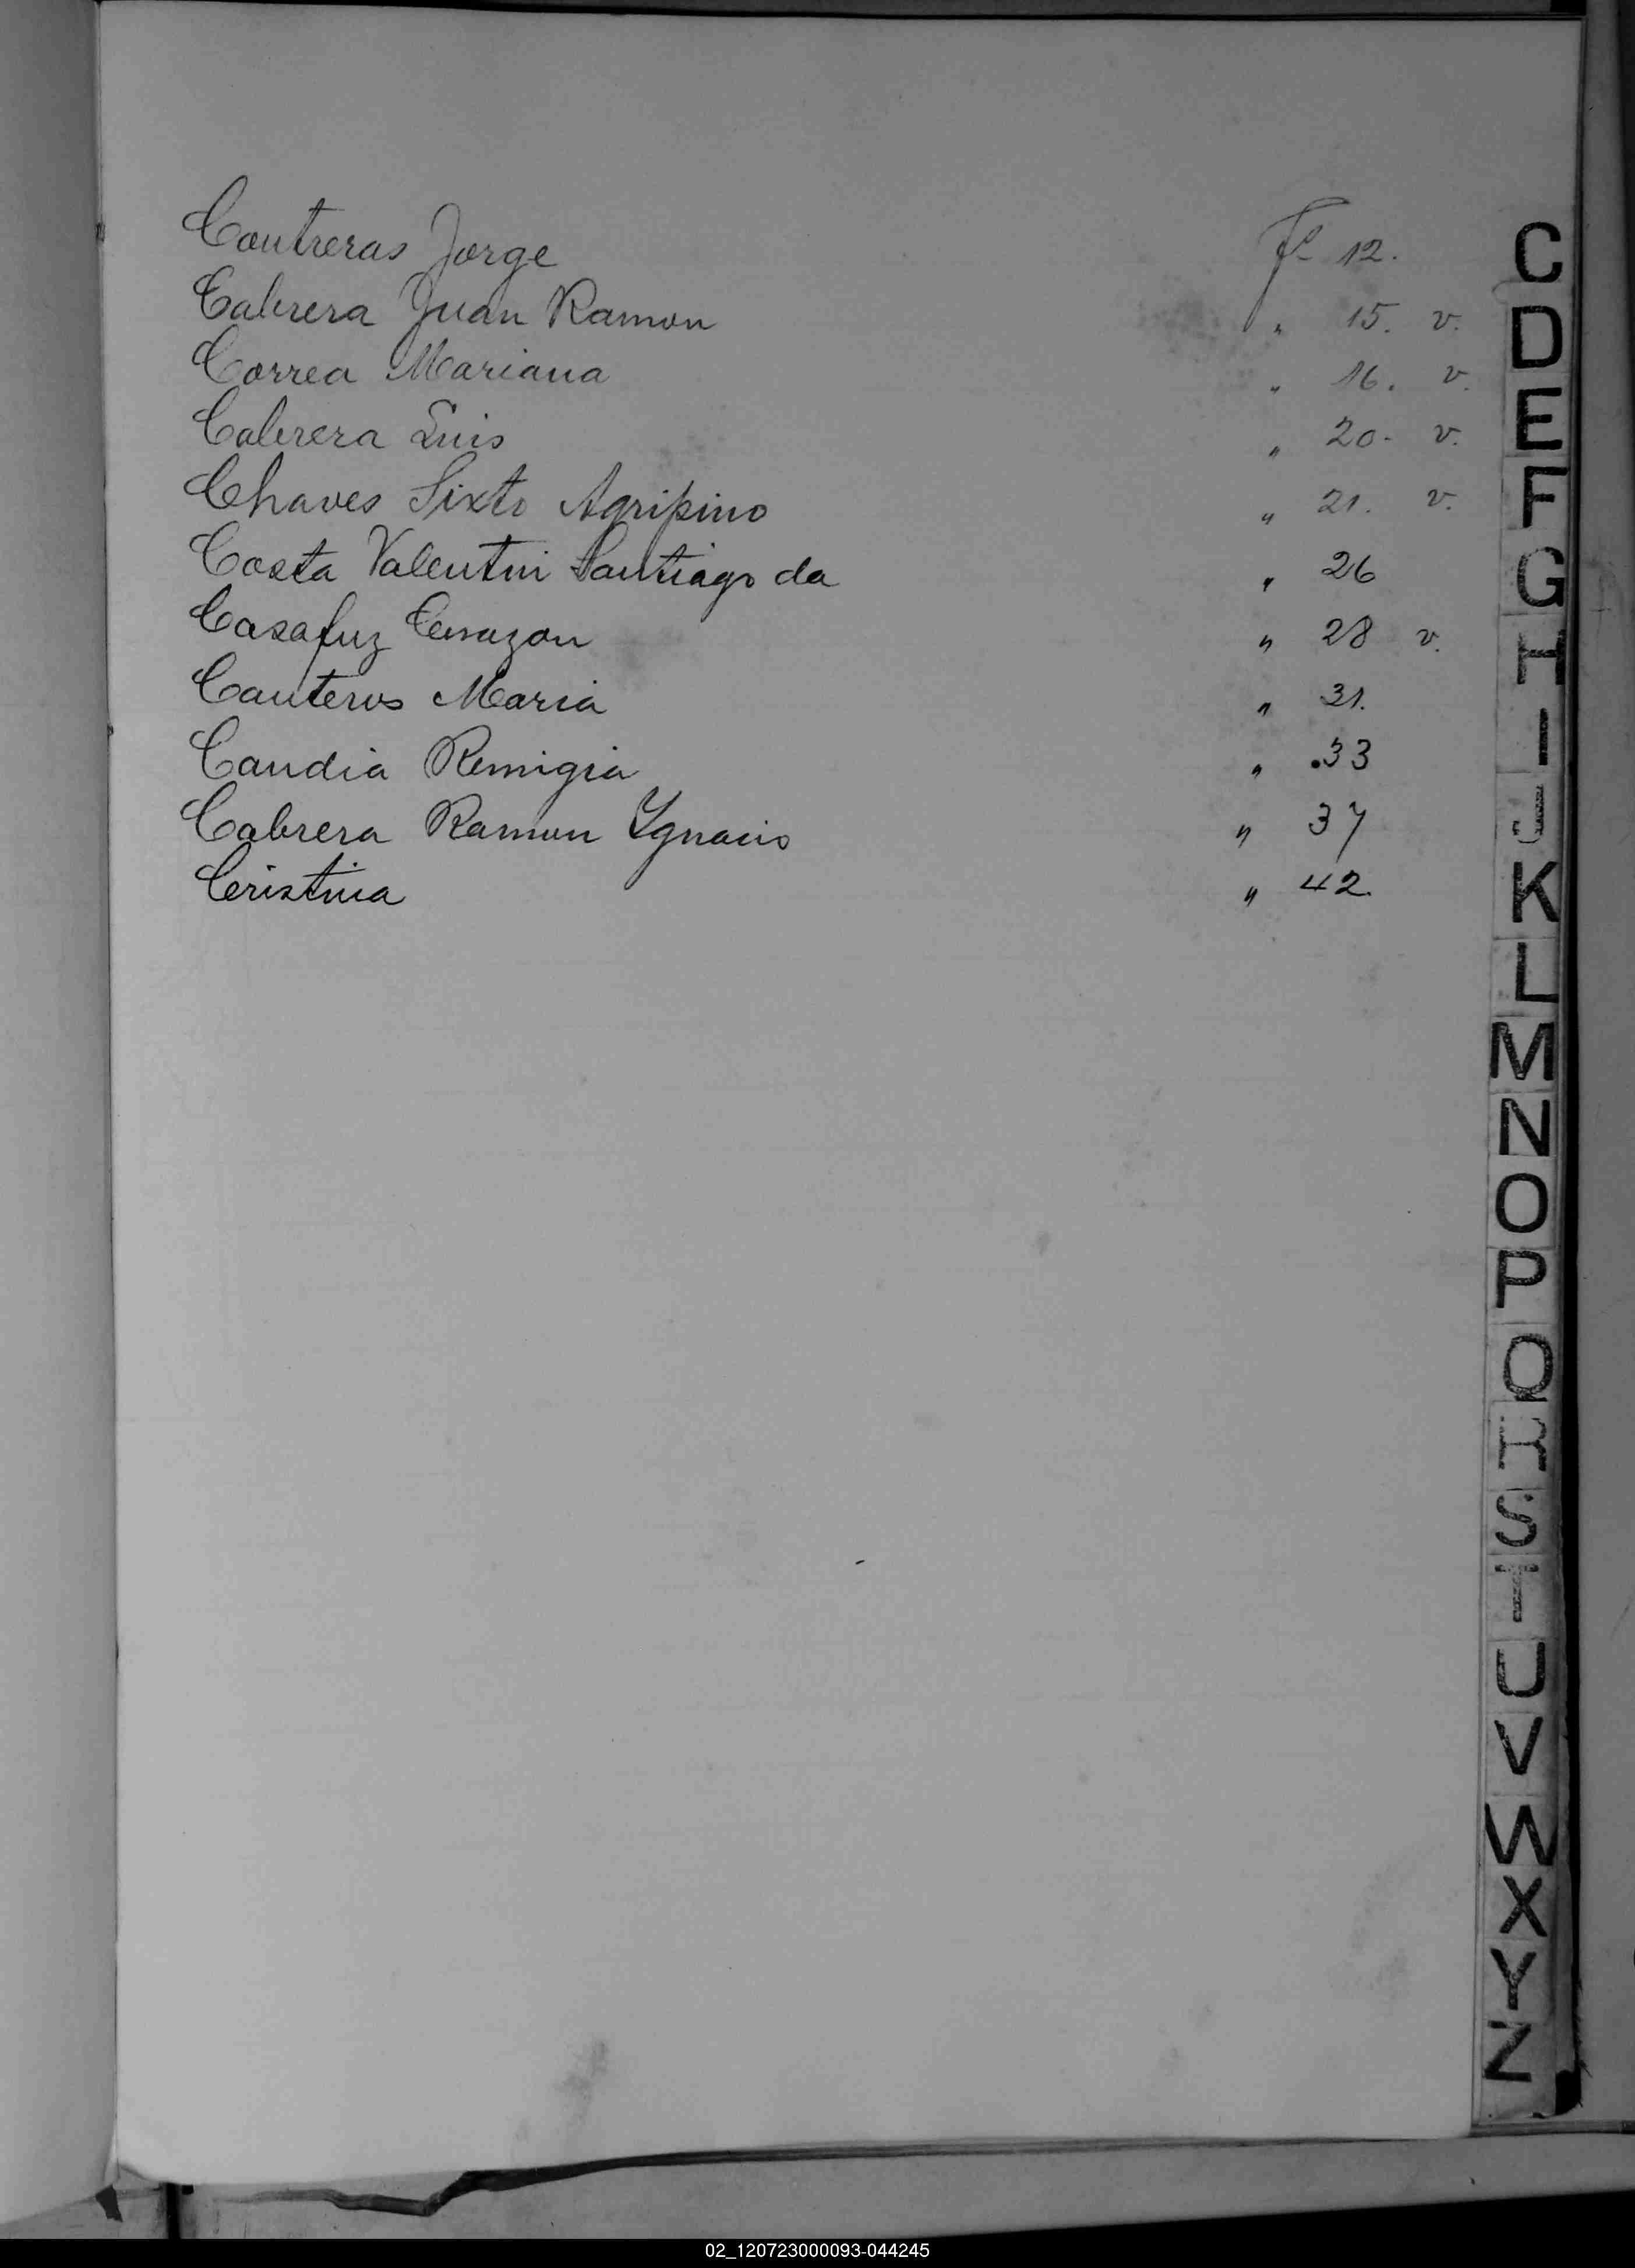 Contreras Jorge Fº 12.
Cabrera Juan Ramon " 15. v.
Correa Mariana " 16. v.
Cabrera Luis " 20. v.
Chaves Sixto Agripino " 21. v.
Costa Valentin Santiago da " 26
Casafuz " 28 v.
Canteros Maria " 31.
Candia Remigia " 33
Cabrera Ramon Ygnacio " 37
Cristina " 42.
C
D
E
F
G
H
I
J
K
L
M
N
O
P
Q
R
S
T
U
V
W
X
Y
Z
02_120723000093-044245